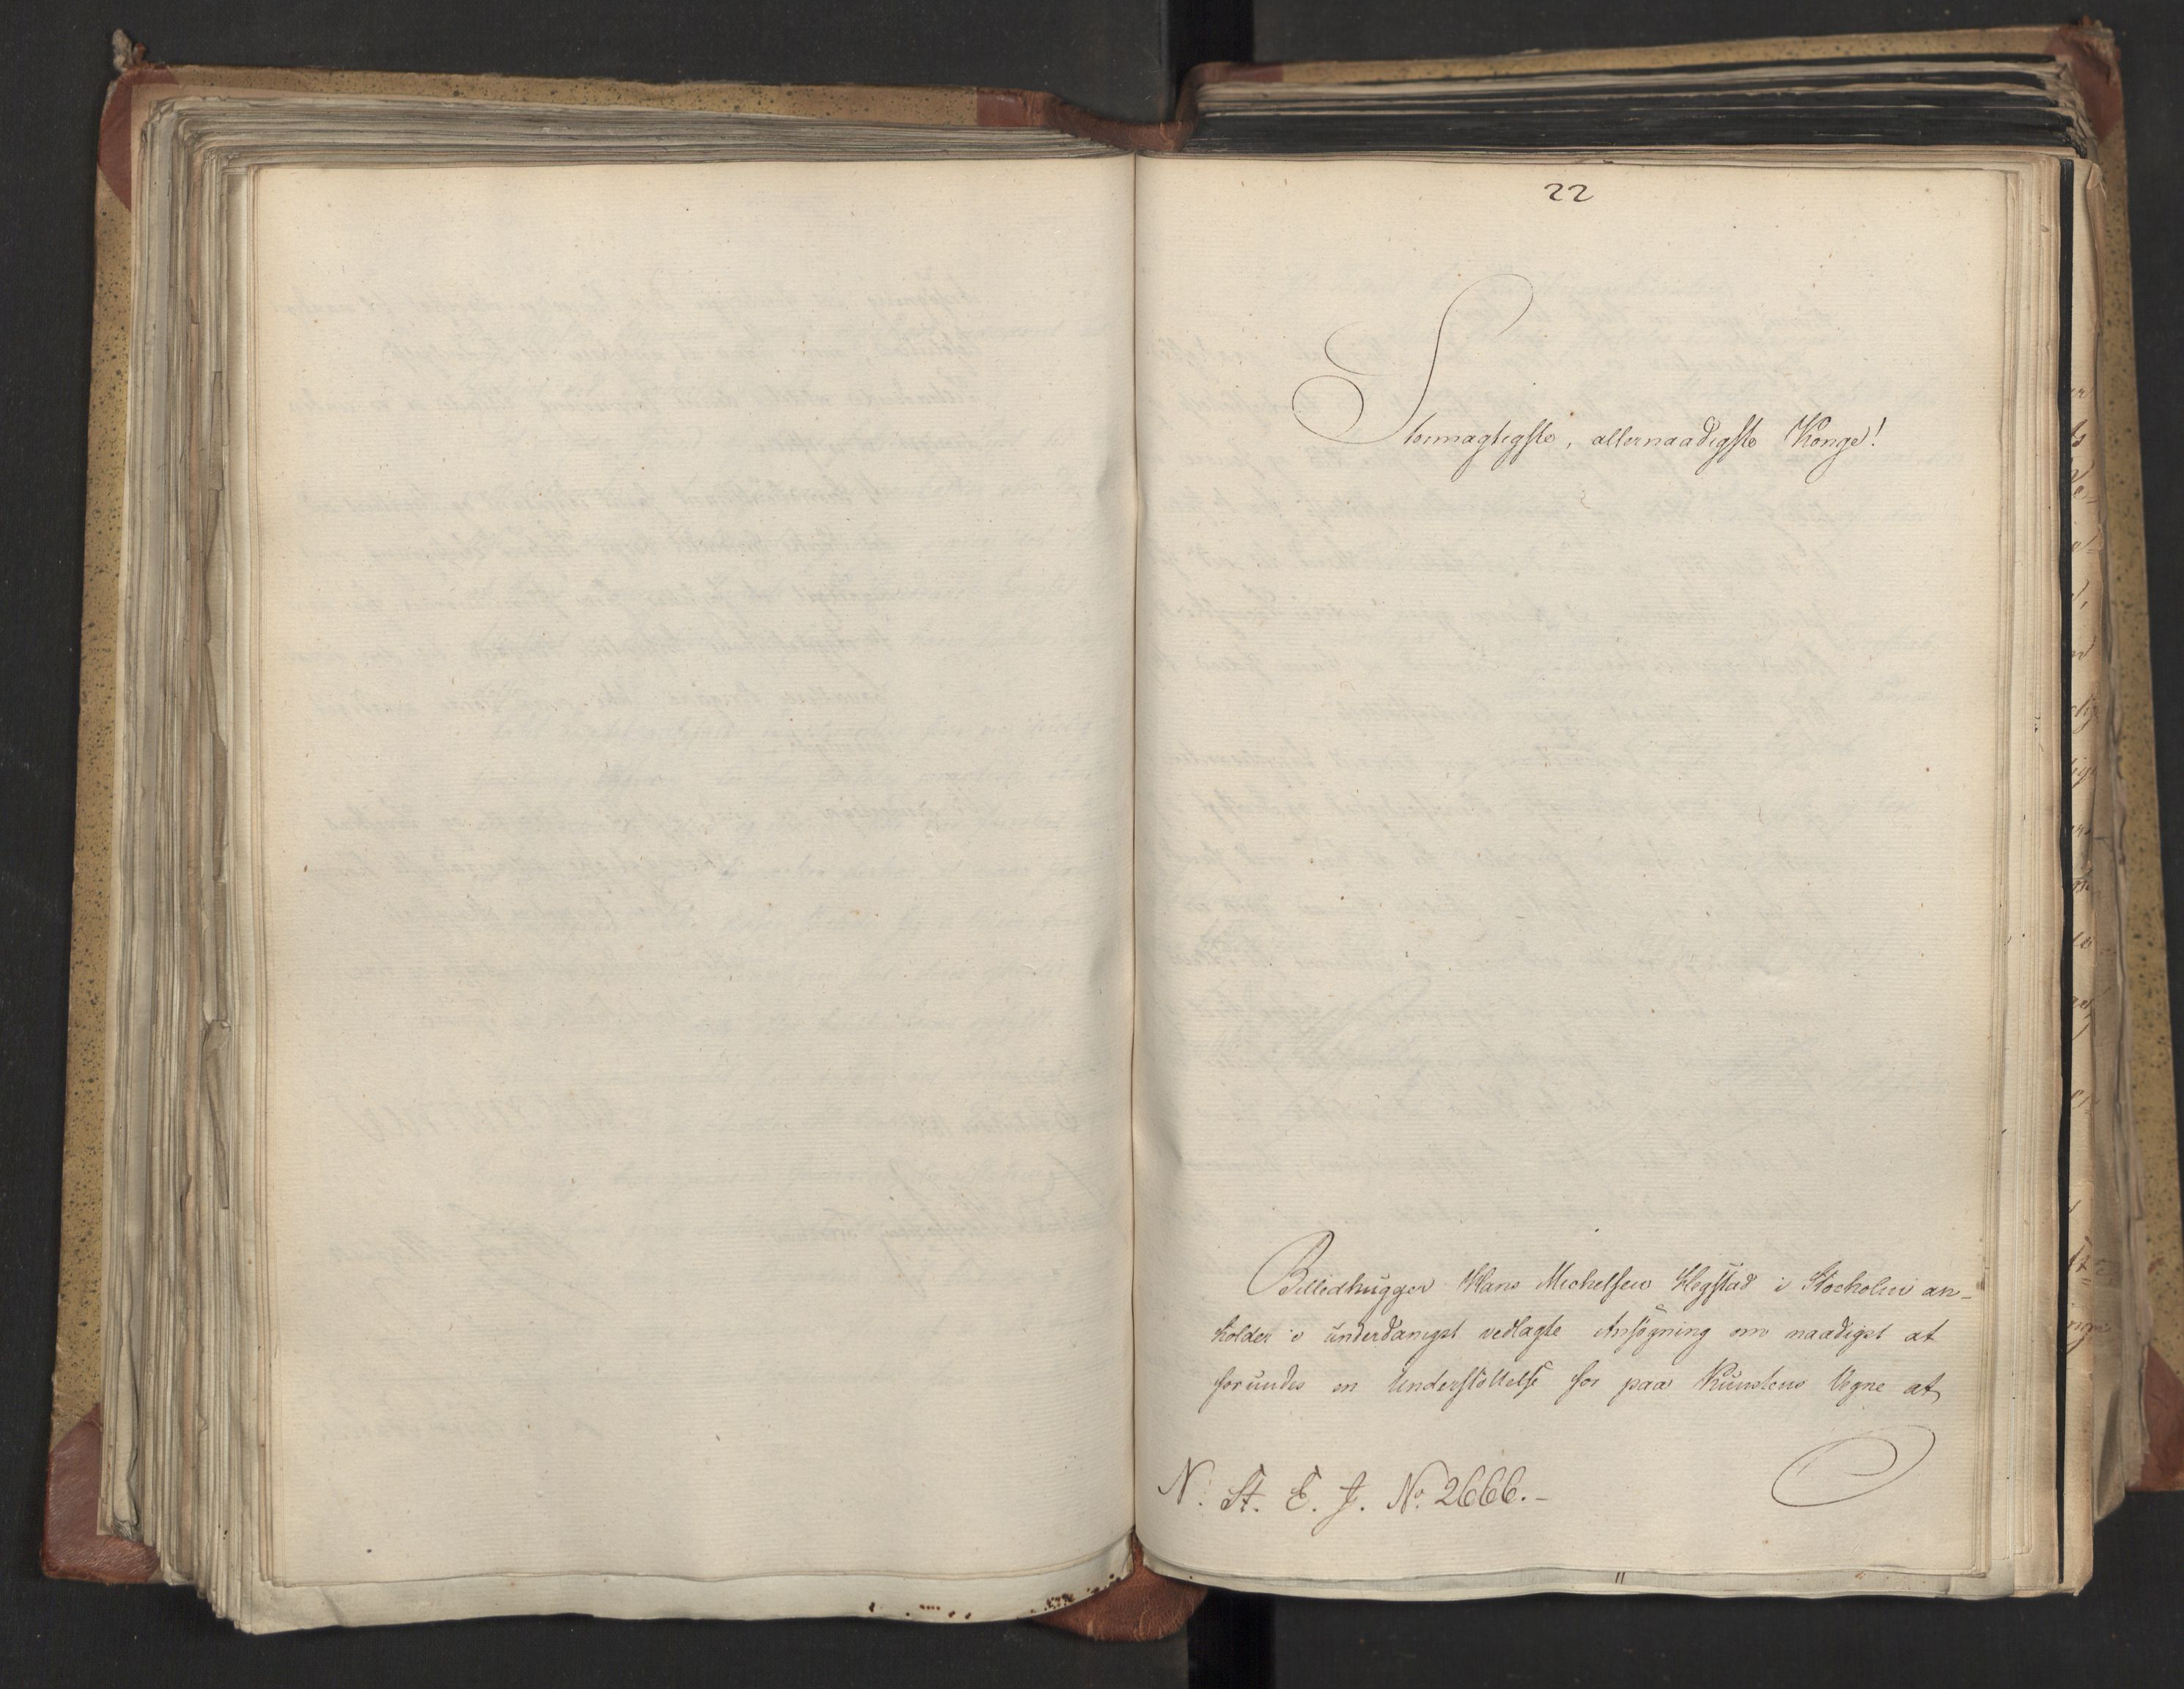 22
Stormægtigste, allernaadigste Konge!
Billedhugger Hans Michelsen Hegstad i Stocholm an-
holder i underdanigst vedlagte Ansøgning om naadigst at
forundes en Understøttelse for paa Kunstens Vegne at
N. St. E. J. No. 2666.-